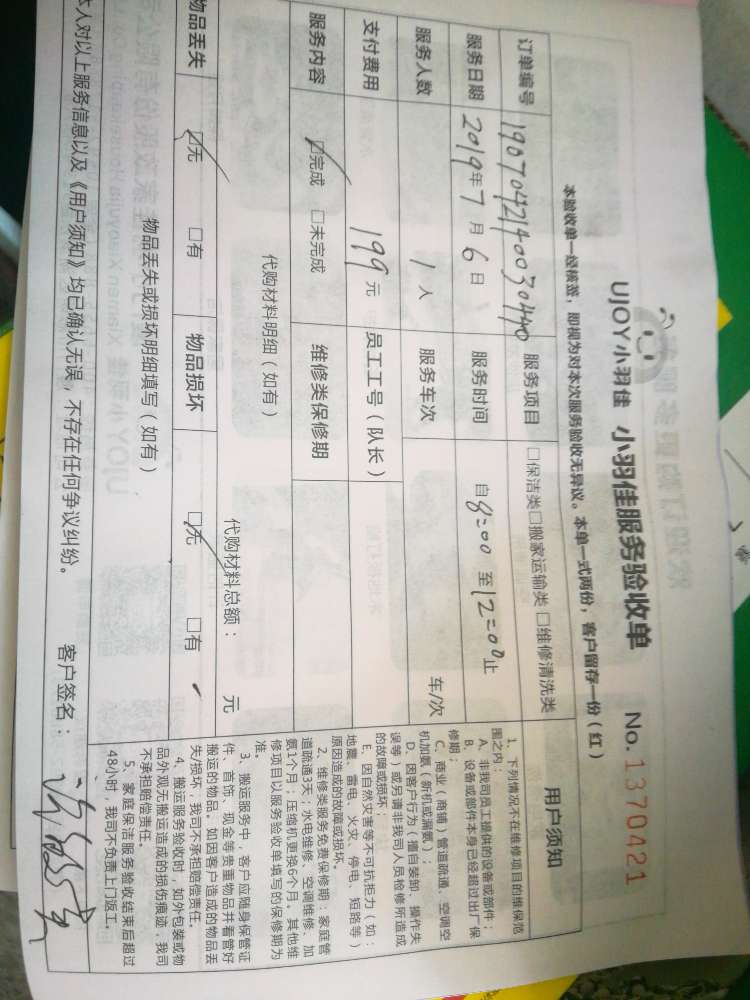 UJOY小羽佳 小羽佳服务验收单 No. 1370421
本验收单一经核签，即视为对本次服务验收无异议。本单一式两份，客户留存一份（红）
订单编号 1907042140030440 服务项目 □保洁类□搬家运输类 □维修清洗类
服务日期 2019年7月6日 服务时间 自8:00 至12:00止
服务人数 1人 服务车次 车/次
支付费用 199元 员工工号（队长）
服务内容 ☑完成 □未完成 维修类保修期
代购材料明细（如有）
代购材料总额： 元
物品丢失 ☑无 □有 物品损坏 ☑无 □有
物品丢失或损坏明细填写（如有）
本人对以上服务信息以及《用户须知》均已确认无误，不存在任何争议纠纷。
客户签名：
用户须知
1、下列情况不在维修项目的维保范
围之内：
A、非我司员工提供的设备或部件；
B、设备或部件本身已经超过出厂保
修期；
C、商业（商铺）管道疏通、空调空
机加氨（新机或漏氨）；
D、因客户行为（擅自装卸、操作失
误等）或另请非我司人员检修所造成
的故障或损坏；
E、因自然灾害等不可抗拒力（如：
地震、雷电、火灾、停电、短路等）
原因造成的故障或损坏。
2、维修类服务免费保修期：家庭管
道疏通3天；水电维修、空调维修、加
氨1个月；压缩机更换6个月。其他维
修项目以服务验收单填写的保修期为
准。
3、搬运服务中，客户应随身保管证
件、首饰、现金等贵重物品并看管好
搬运的物品。如因客户造成的物品丢
失/损坏，我司不承担赔偿责任。
4、搬运服务验收时，如外包装或物
品外观无搬运造成的损伤痕迹，我司
不承担赔偿责任。
5、家庭保洁服务验收结束后超过
48小时，我司不负责上门返工。